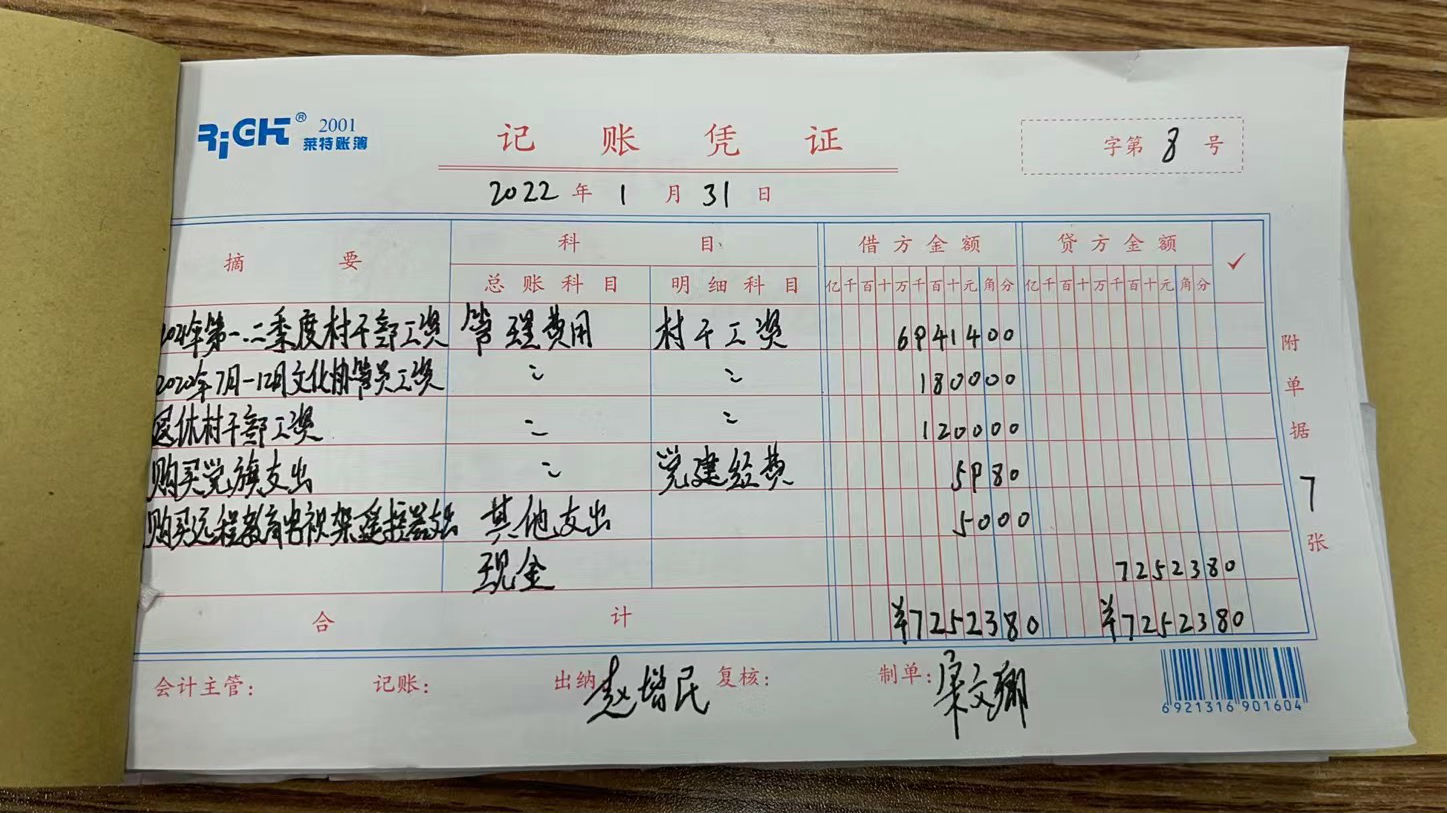 RiGHt® 2001
莱特账簿
记账凭证
字第 8 号
2022 年 1 月 31 日
摘要 科目 借方金额 贷方金额 ✓
总账科目 明细科目 亿千百十万千百十元角分 亿千百十万千百十元角分
年第一.二季度村干部工资 管理费用 村干工资 6941400
2020年7月-12月文化协管员工资 〃 〃 180000
退休村干部工资 〃 〃 120000
购买党旗支出 〃 党建经费 5980
购买远程教育电视架遥控器 其他支出 5000
现金 7252380
合计 ¥7252380 ¥7252380
附单据 7 张
会计主管: 记账: 出纳 赵增民 复核: 制单: 宋文卿
6 921316 901604